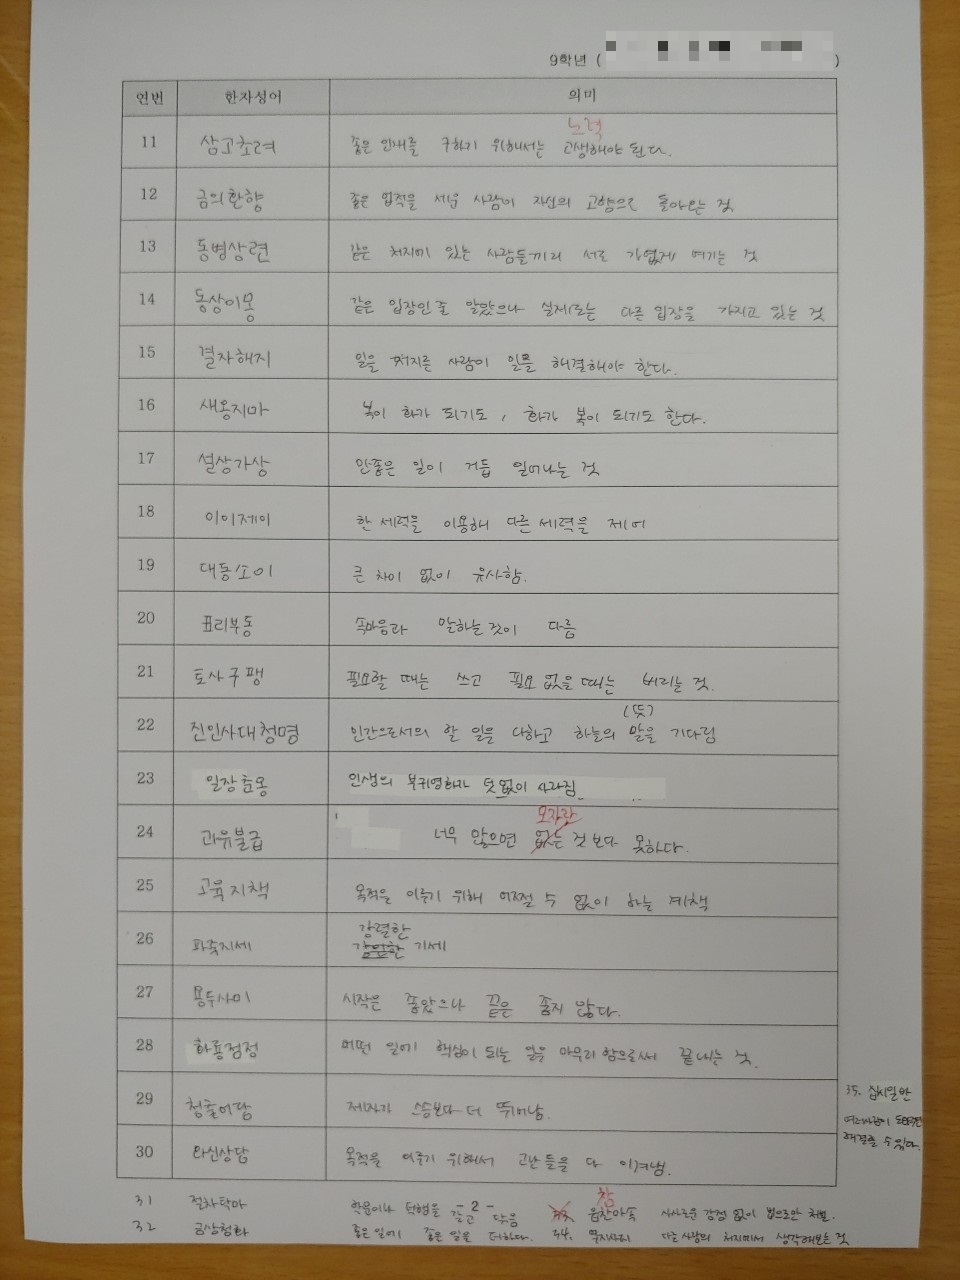 9학년 ( )
연번 한자성어 의미
노력
11 삼고초려 좋은 인재를 구하기 위해서는 고생해야 된다.
12 금의환향 좋은 업적을 세운 사람이 자신의 고향으로 돌아오는 것
13 동병상련 같은 처지에 있는 사람들끼리 서로 가엽게 여기는 것
14 동상이몽 같은 입장인 줄 알았으나 실제로는 다른 입장을 가지고 있는 것
15 결자해지 일을 저지른 사람이 일을 해결해야 한다.
16 새옹지마 복이 화가 되기도, 화가 복이 되기도 한다.
17 설상가상 안좋은 일이 거듭 일어나는 것
18 이이제이 한 세력을 이용해 다른 세력을 제어
19 대동소이 큰 차이 없이 유사함.
20 표리부동 속마음과 말하는 것이 다름
21 토사구팽 필요할 때는 쓰고 필요 없을 때는 버리는 것.
(뜻)
22 진인사대천명 인간으로서의 할 일을 다하고 하늘의 말을 기다림
23 일장춘몽 인생의 부귀영화가 덧없이 사라짐
모자란
24 과유불급 너무 많으면 없는 것보다 못하다.
25 고육지책 목적을 이루기 위해 어쩔 수 없이 하는 계책
강렬한
26 파죽지세 기세
27 용두사미 시작은 좋았으나 끝은 좋지 않다.
28 화룡점정 어떤 일에 핵심이 되는 일을 마무리 함으로써 끝내는 것.
29 청출어람 제자가 스승보다 더 뛰어남.
35. 십시일반
여러사람이 도와주면
해결할 수 있다.
30 와신상담 목적을 이루기 위해서 고난들을 다 이겨냄.
- 2 -
31 절차탁마 학문이나 덕행을 갈고 닦음
참
읍찬마속 사사로운 감정 없이 법으로만 처벌.
32 금상첨화 좋은 일에 좋은 일을 더하다.
34. 역지사지 다른 사람의 처지에서 생각해보는 것